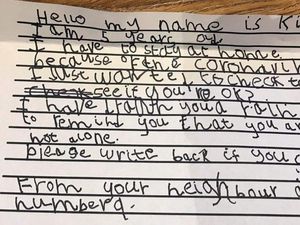 Hello my name is Ki
I am 5 years old
I have to stay at home
because of the coronavir
I Just wanted to check to
see if you're ok?
I have
to remind you that you a
not alone.
please write back if you c
From your neighbour
number 9.